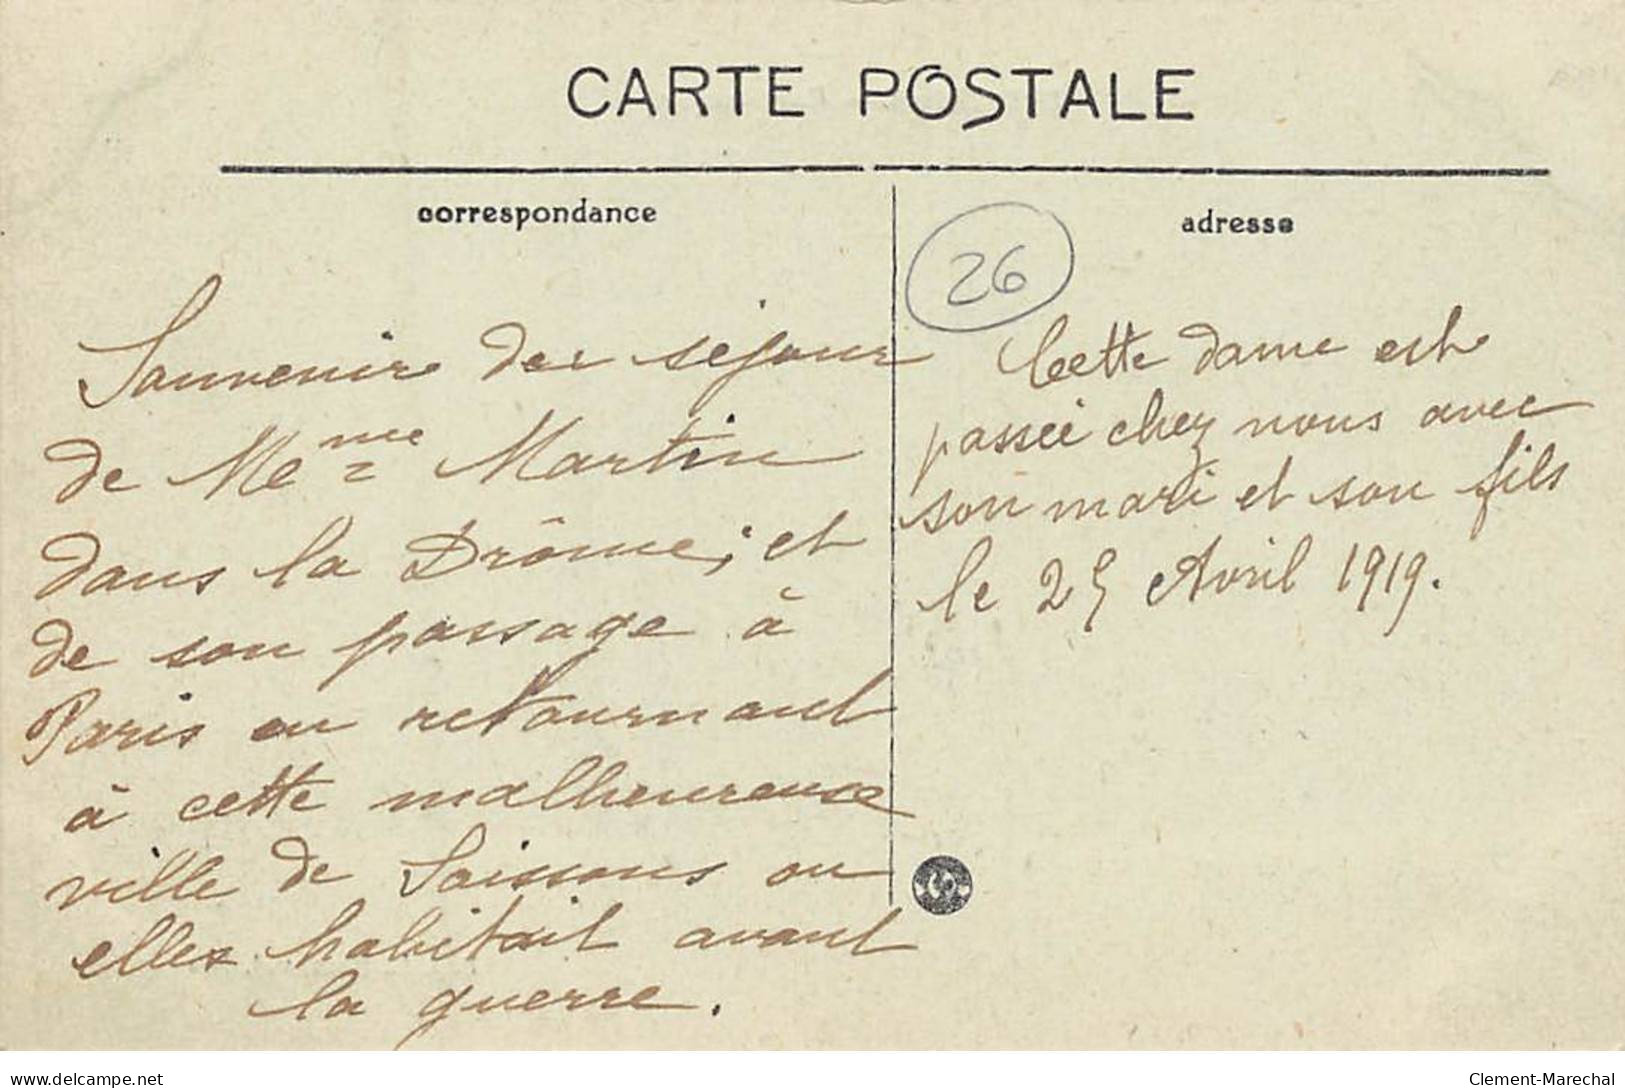 CARTE POSTALE
correspondance
adresse
26
Souvenir des séjour
de Meme Martin
dans la Drôme, et
de son passage à
Paris en retournant
à cette malheureuse
ville de Soissons ou
elles habitait avant
la guerre.
Cette dame est
passée chez nous avec
son mari et son fils
le 25 Avril 1919.
www.delcampe.net
Clement-Marechal